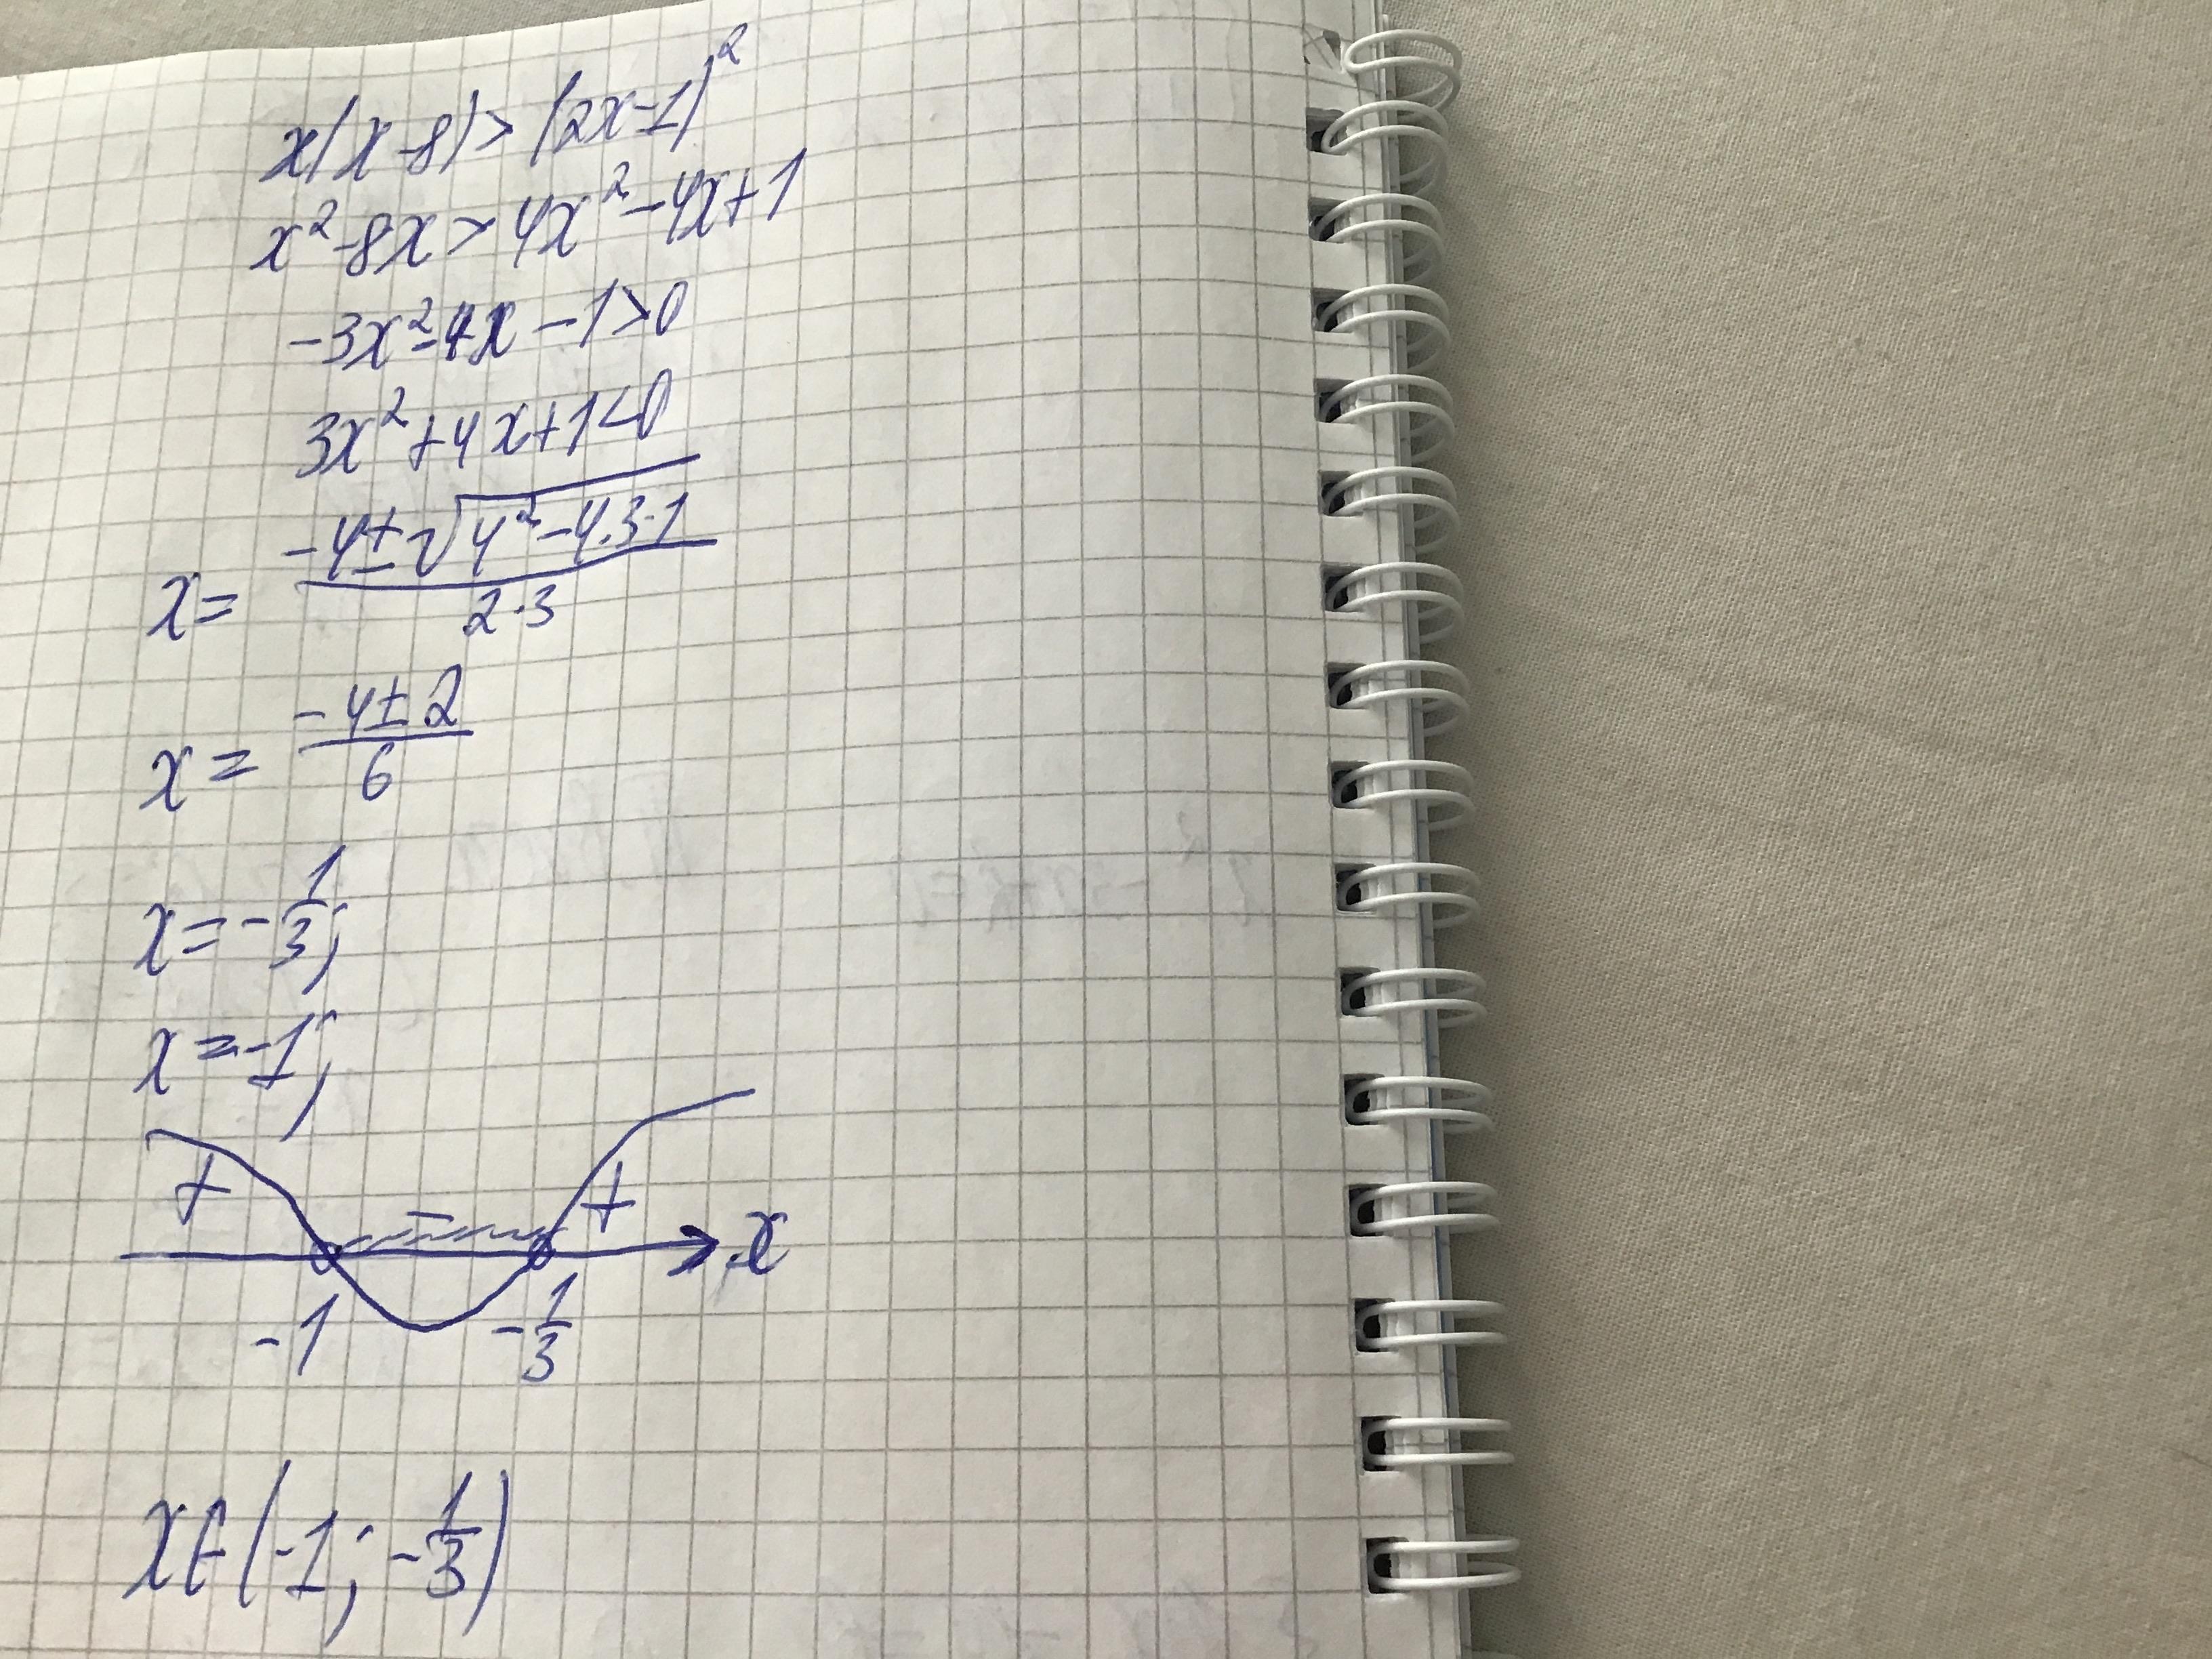 x(x-8)>(2x-1)²
x²-8x>4x²-4x+1
-3x²-4x-1>0
3x²+4x+1<0
x= (-4±√(4²-4·3·1))/(2·3)
x= (-4±2)/6
x=-1/3;
x=-1;
+ - + x
-1 -1/3
x∈(-1;-1/3)